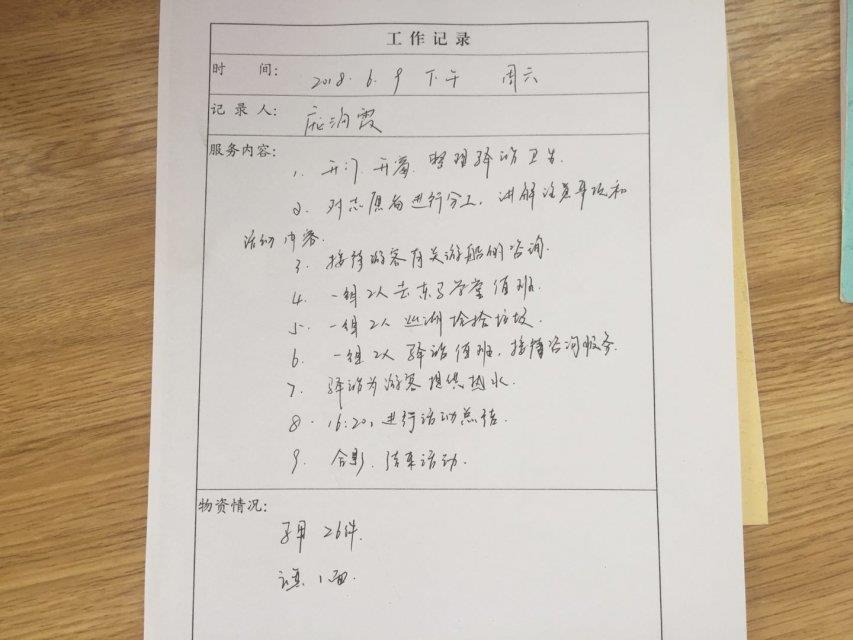 工作记录
时 间: 2018.6.9 下午 周六
记录人: 霞
服务内容: 1. 开门 开窗. 整理驿站卫生.
2. 对志愿者进行分工, 讲解注意事项和
活动内容.
3. 接待游客有关游船的咨询.
4. 一组2人去东子学堂值班.
5. 一组2人巡湖捡拾垃圾.
6. 一组2人驿站值班, 接待咨询服务.
7. 驿站为游客提供热水.
8. 16:20, 进行活动总结.
9. 合影. 结束活动.
物资情况:
26件.
1面.